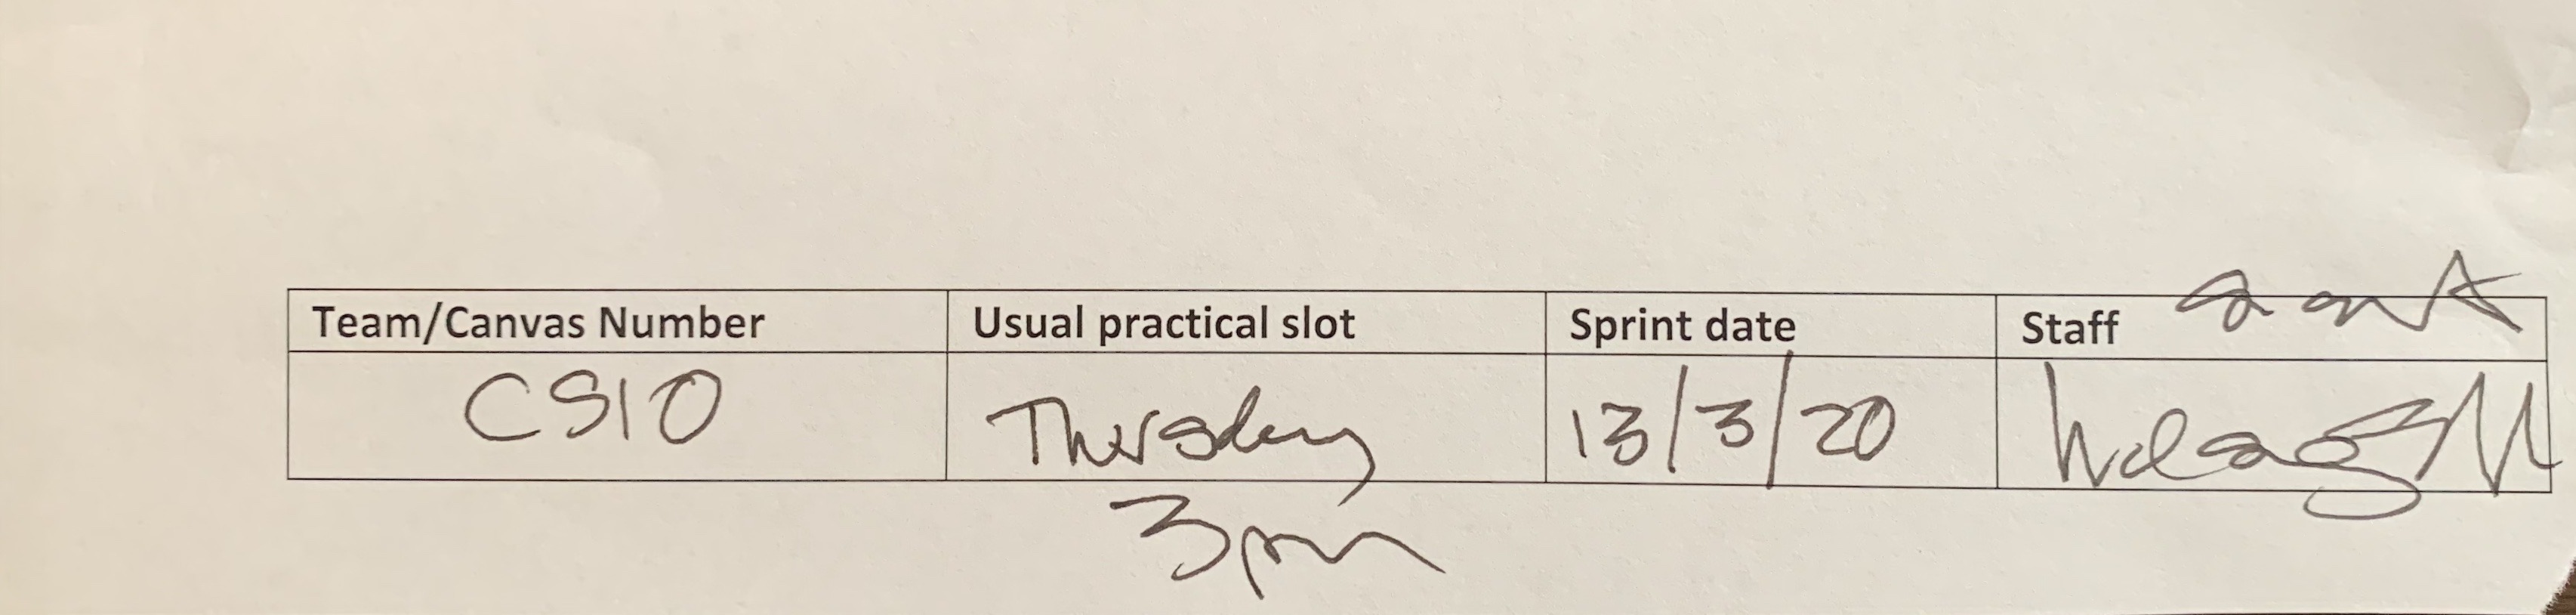 Team/Canvas Number Usual practical slot Sprint date Staff
CS10 Thursday 13/3/20
3pm